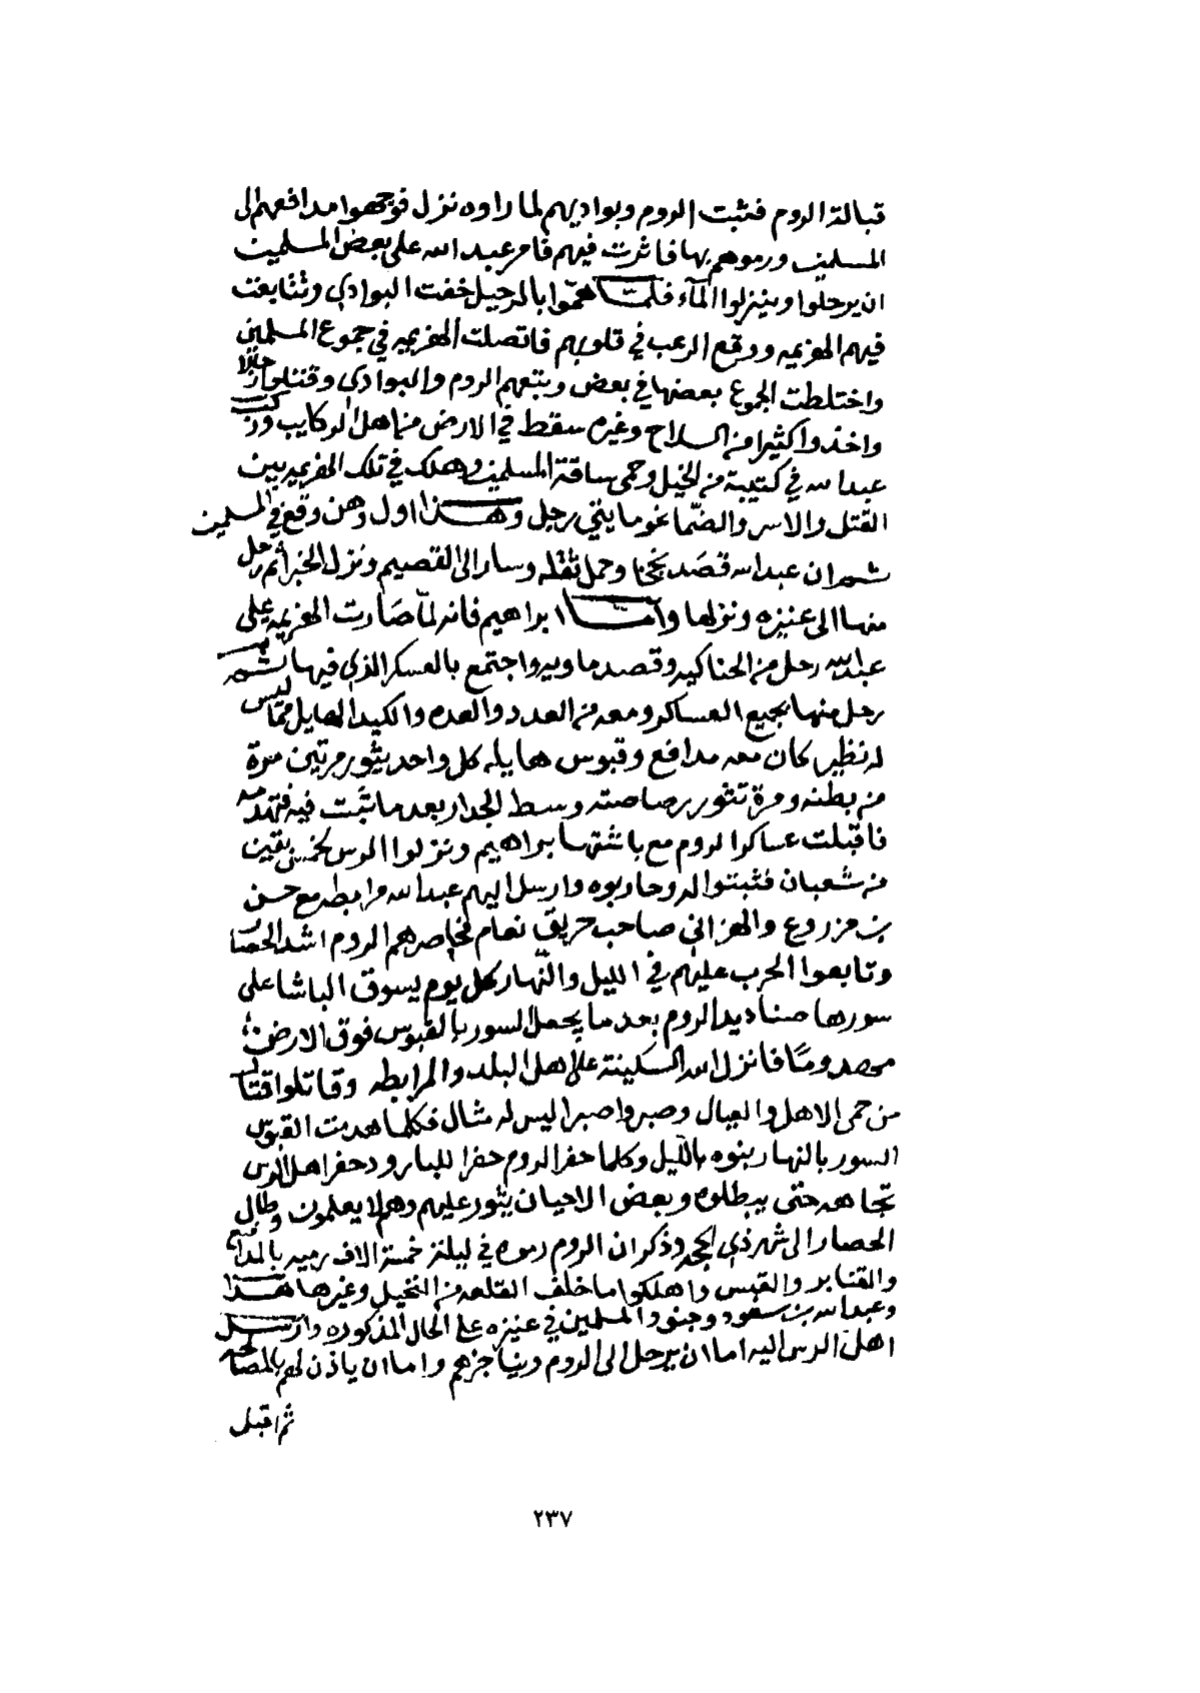 قبالة الروم فثبت الروم وبواديهم لما راوه نزل فوجهوا مدافعهم الى
المسلمين ورموهم بها فاثرت فيهم فامر عبدالله على بعض المسلمين
ان يرحلوا وينزلوا المآء فلمّا همّوا بالرحيل خفت البوادي وتتابعت
فيهم الهزيمه ووقع الرعب في قلوبهم فاتصلت الهزيمه في جموع المسلمين
واختلطت الجموع بعضها في بعض وتبعهم الروم والبوادي وقتلوا رجالا
واخذوا كثيرا من السلاح وغيره سقط في الارض من اهل الركايب وركب
عبدالله في كتيبة من الخيل وحمى ساقة المسلمين وهلك في تلك الهزيمه بين
القتل والاسر والضما نحو مايتي رجل وهذا اول وهن وقع في المسلمين
ثم ان عبدالله قصد نجخا وحمل ثقله وسار الى القصيم ونزل الخبرا ثم رحل
منها الى عنيزه ونزلها وامّا ابراهيم فانه لمّا صَارت الهزيمه على
عبدالله رحل من الحناكيه وقصد ماويه واجتمع بالعسكر الذي فيها ثم
رحل منها بجميع العساكر ومعه من العدد والعده والكيد الهايل ممّا ليس
له نظير كان معه مدافع وقبوس هايله كل واحد يثور مرتين مرة
من بطنه ومرة تثور رصاصته وسط الجدار بعد ما تثبت فيه فتهدمه
فاقبلت عساكر الروم مع باشتها ابراهيم ونزلوا الرس لخمس بقين
من شعبان فثبتوا له وحاربوه وارسل اليهم عبدالله مرابطه مع حسن
بن مزروع والهزاني صاحب حريق نعام فحاصرهم الروم اشد الحصار
وتابعوا الحرب عليهم في الليل والنّهار كل يوم يسوق الباشا على
سورها صناديد الروم بعد ما يجعل السور بالقبوس فوق الارض
مهدومًا فانزل الله السكينة على اهل البلد والمرابطه وقاتلوا قتال
من حمى الاهل والعيال وصبروا صبرا ليس له مثال فكلما هدمت القبوس
السور بالنهار بنوه بالليل وكلما حفر الروم حفرا للبارود حفر اهل الرس
تجاهه حتى يبطلوه وبعض الاحيان يثور عليهم وهم لا يعلمون وطال
الحصار الى شهر ذي الحجه وذكر ان الروم رموه في ليلة خمسة الاف رميه بالمدافع
والقنابر والقبس واهلكوا ما خلف القلعه من النخيل وغيرها هذا
وعبدالله بن سعود وجنود المسلمين في عنيزه على الحال المذكوره وارسل
اهل الرس اليه اما ان يرحل الى الروم ويناجزهم واما ان ياذن لهم بالمصالحه
ثم اقبل
٢٣٧